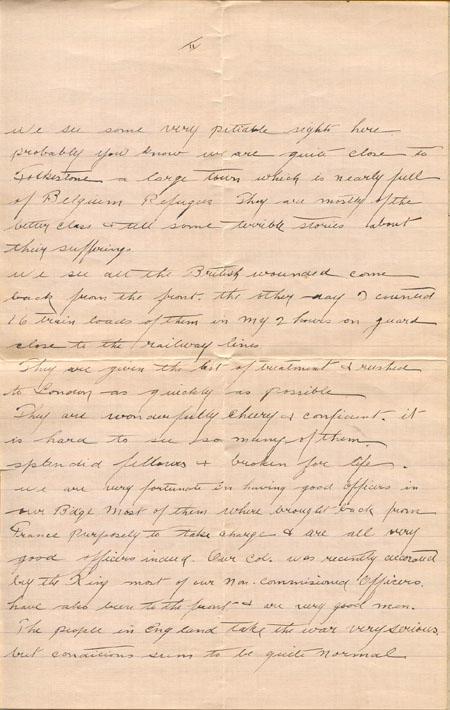 IV
We see some very pitiable sights here
probably you know we are quite close to
Folkestone a large town which is nearly full
of Belguim Refugees They are mostly of the
better class & tell some terrible stories about
their sufferings
We see all the British wounded come
back from the front. the other day I counted
16 train loads of them in my 2 hours on guard
close to the railway lines
They are given the best of treatment & rushed
to London as quickly as possible
They are wonderfully cheery & conficent. it
is hard to see so many of them
splendid fellows & broken for life.
We are very fortunate in having good officers in
our Bdge Most of them where brought back from
France purposely to take charge & are all very
good officers indeed. Our Col. was recently decorated
by the King most of our Non-commisioned Officers.
have also been to the front & are very good men.
The people in England take the war very serious.
but conditions seem to be quite normal